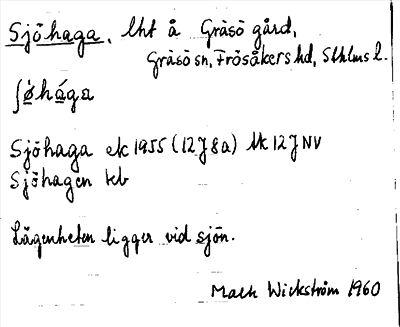 Sjöhaga, lht å Gräsö gård,
Gräsö sn, Frösåkers hd, Sthlms l.
ʃø̀hága
Sjöhaga ek 1955 (12J8a) tk 12J NV
Sjöhagen tcb
Lägenheten ligger vid sjön.
Mats Wickström 1960